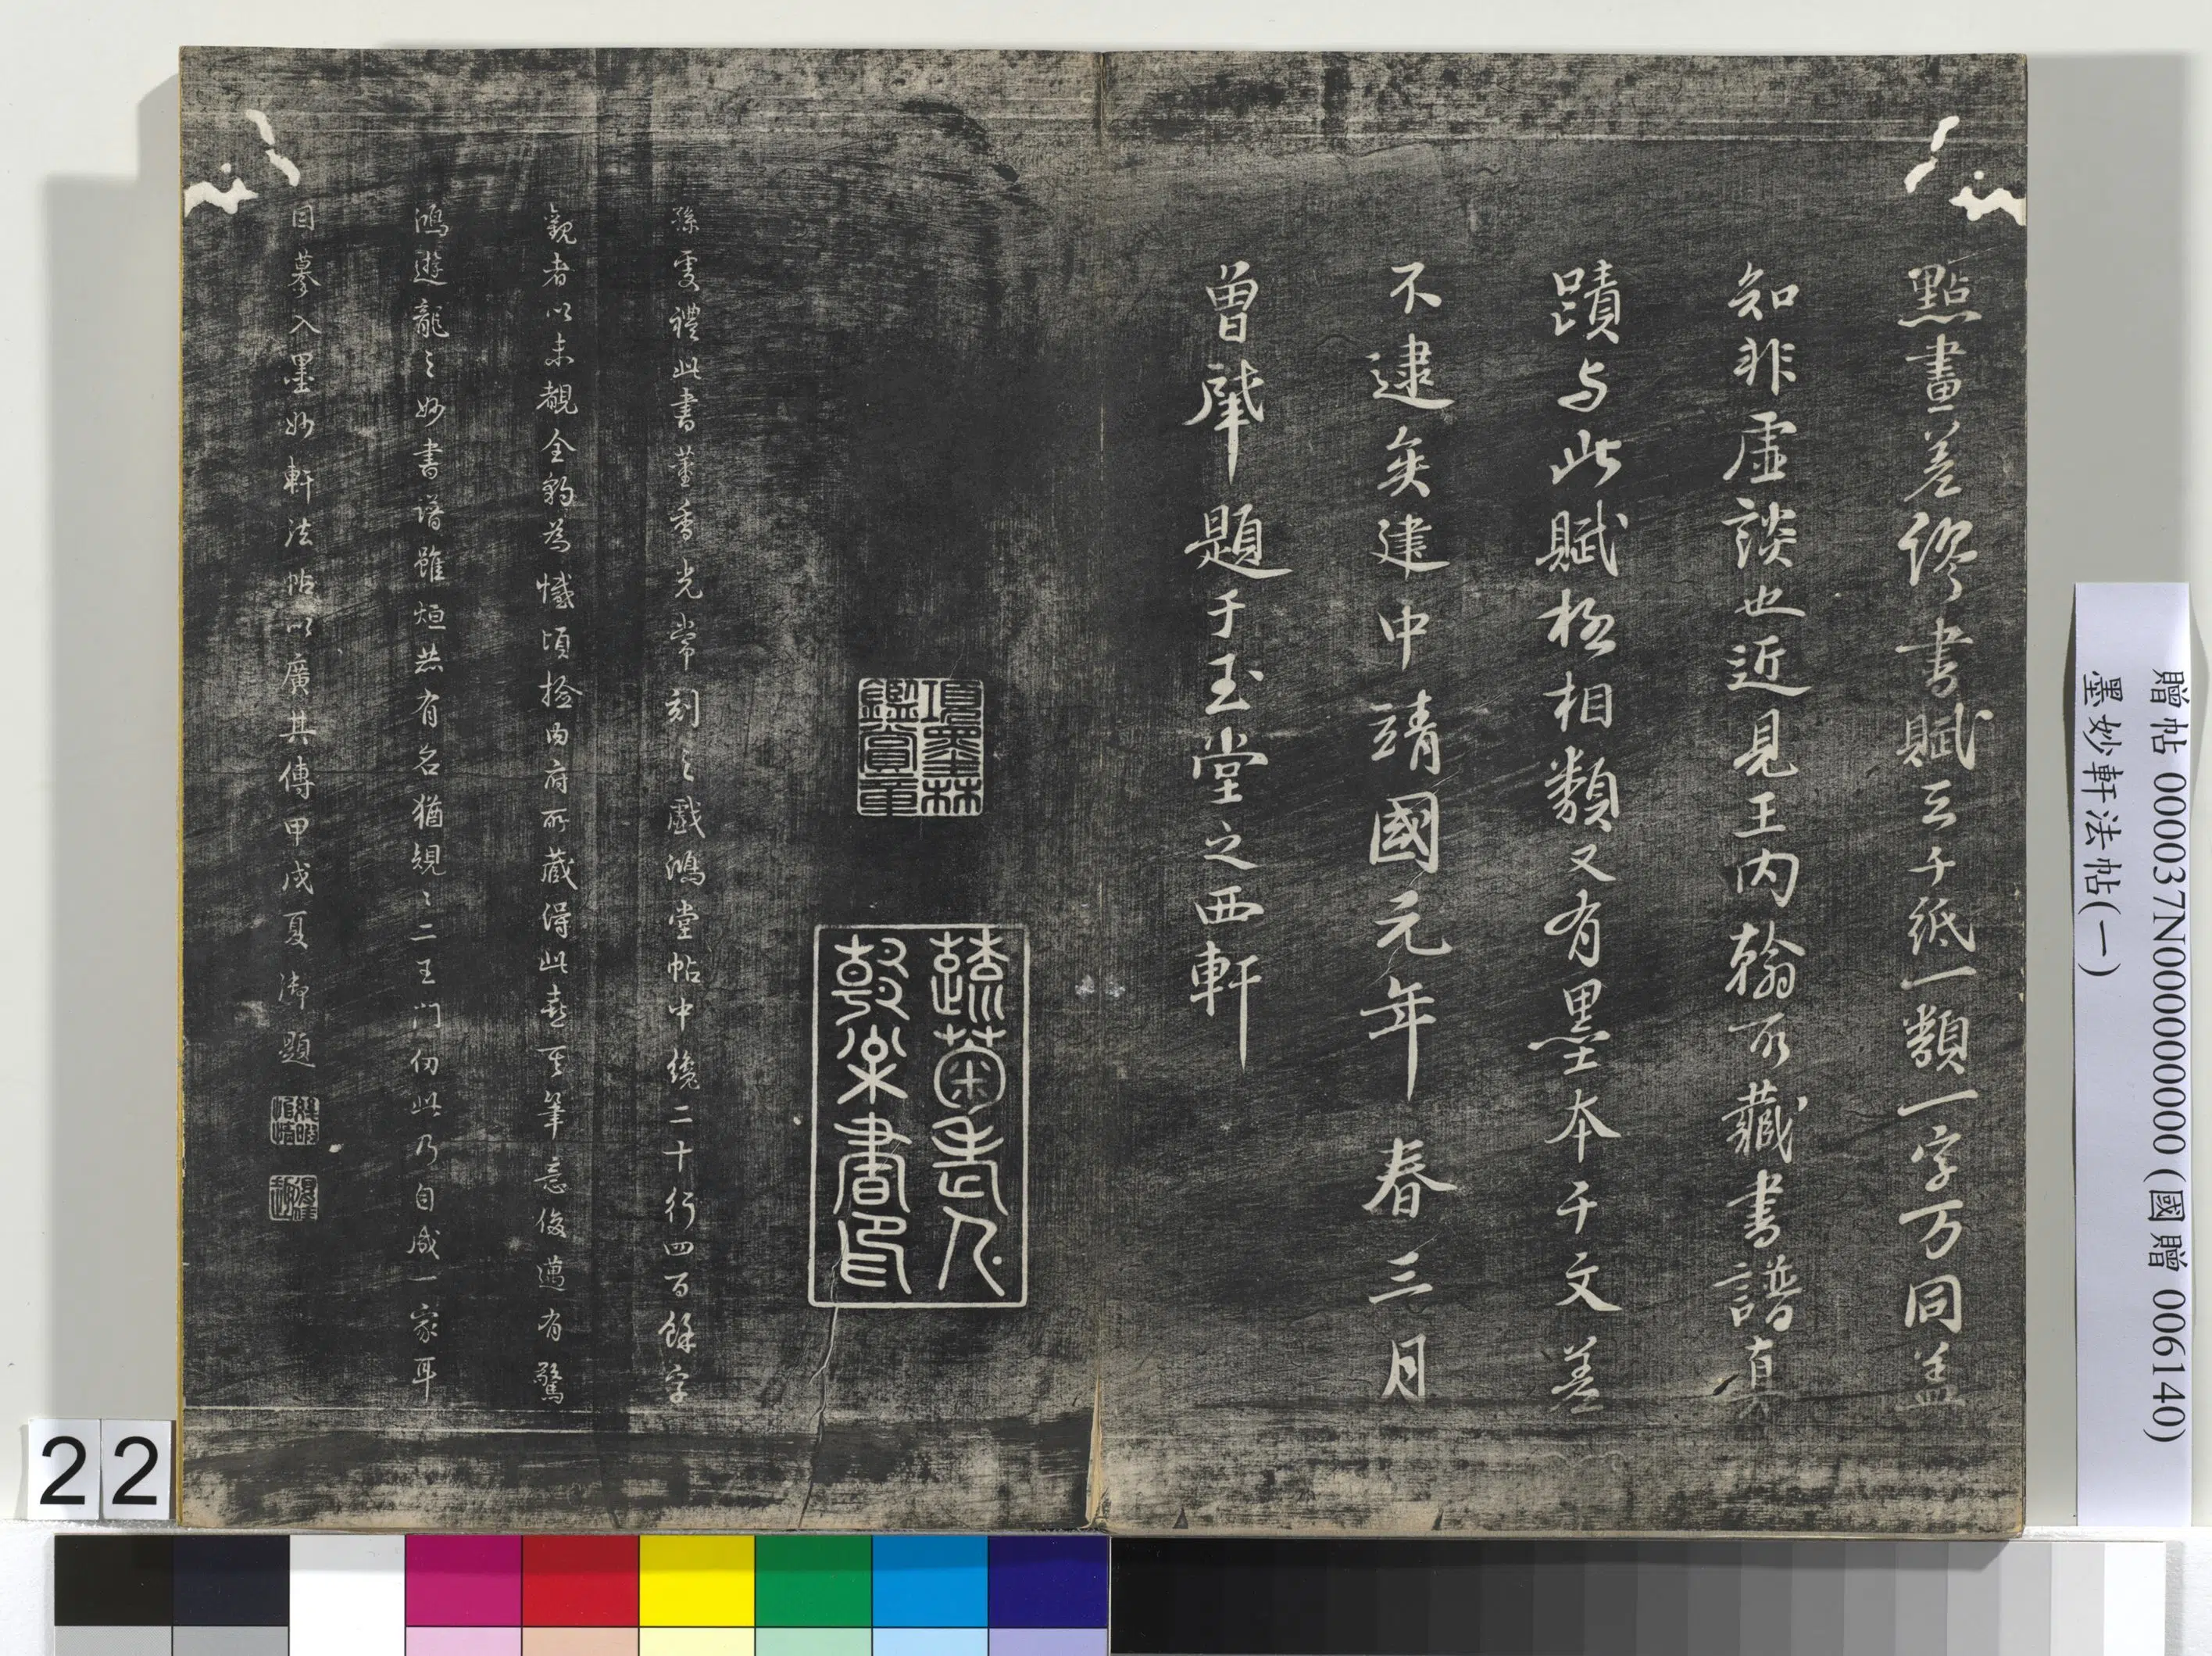 點畫差繆書賦云千紙一類一字万同盖
知非虛談也近見王内翰所藏書譜真
蹟与此賦極相類又有墨本千文差
不逮矣建中靖國元年春三月
曾肇題于玉堂之西軒
項墨林鑑賞章
孫虔禮此書董香光常刻之戲鴻堂帖中纔二十行四百餘字
觀者以未覩全豹為憾頃撿内府所藏得此卷其筆意俊邁有驚
鴻遊龍之妙書譜雖烜赫有名猶規〻二王門仞此乃自成一家耳
因摹入墨妙軒法帖以廣其傳甲戌夏御題
贈帖 000037N000000000 (國贈 006140)
墨妙軒法帖(一)
22